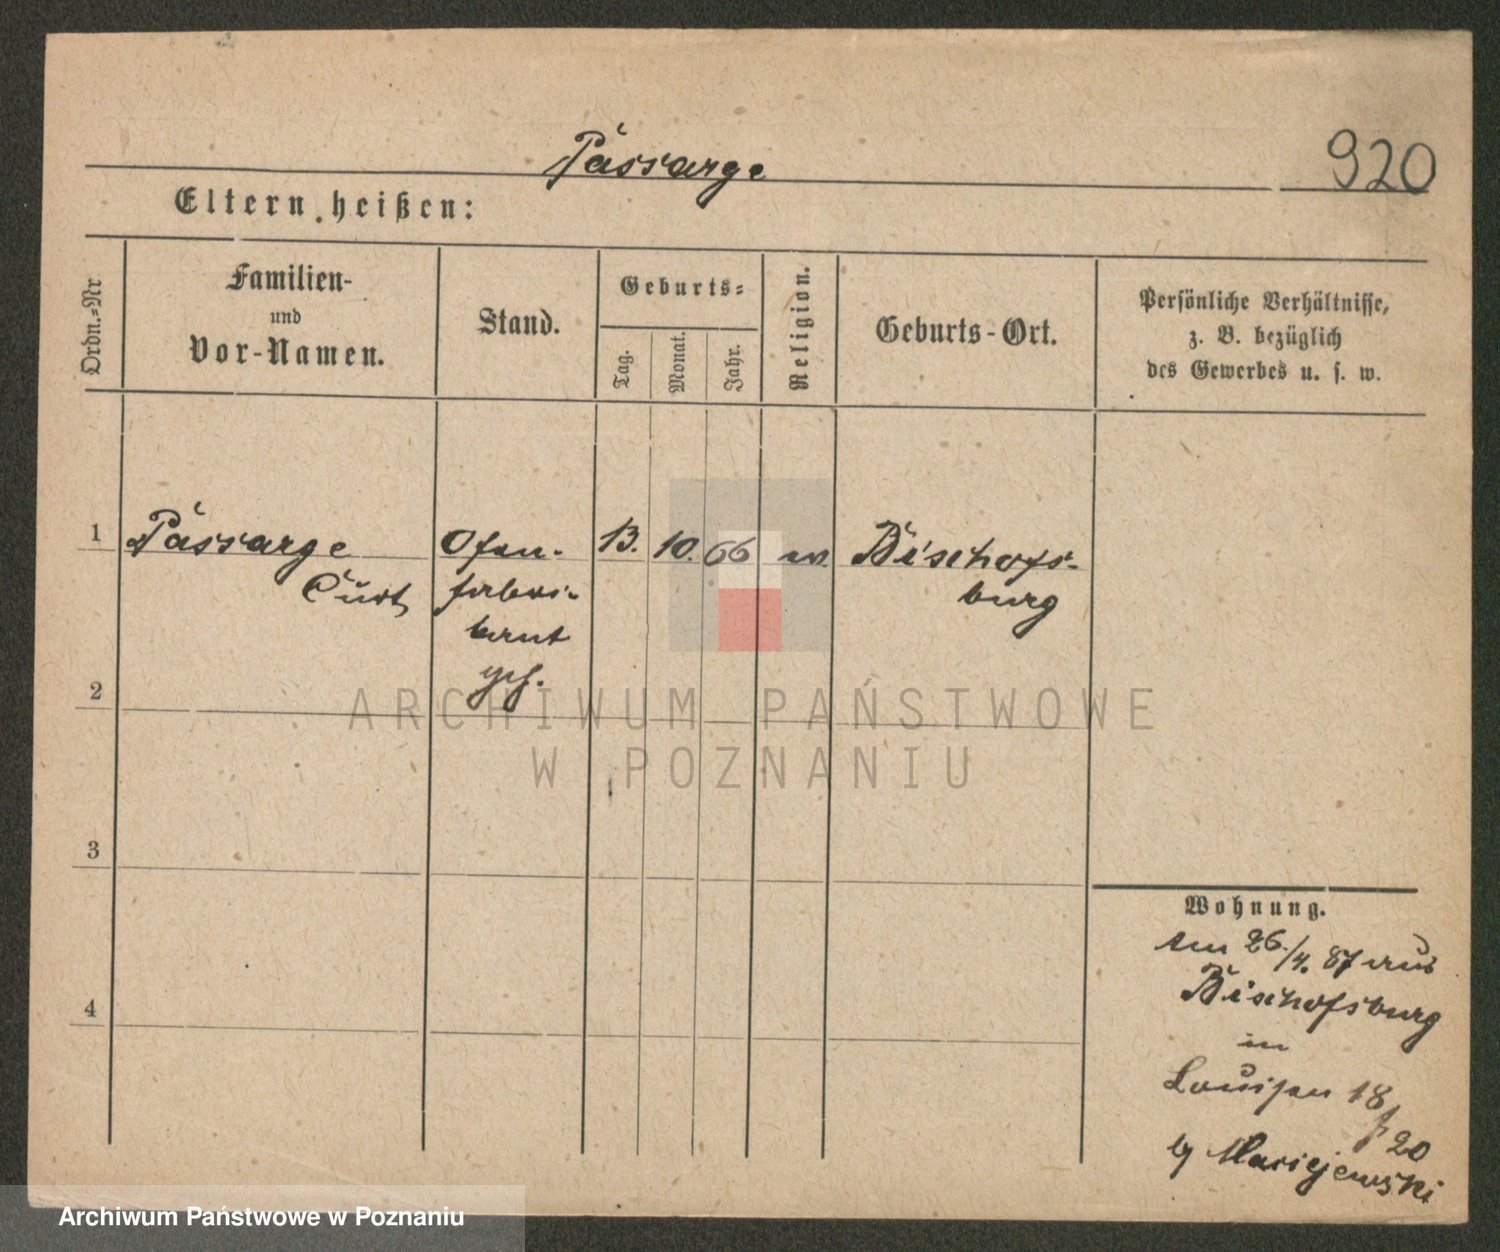 Passarge
920
Eltern heißen:
Ordn.-Nr
Familien-
und
Vor-Namen.
Stand.
Geburts-
Tag.
Monat.
Jahr.
Religion.
Geburts-Ort.
Persönliche Verhältnisse,
z. B. bezüglich
des Gewerbes u. s. w.
1
Passarge
Curt
Ofen-
fabri-
kant
geh.
13.
10.
66
ev
Bischofs-
burg
2
ARCHIWUM PAŃSTWOWE
W POZNANIU
3
4
Wohnung.
am 26./4. 87 aus
Bischofsburg
in
Louisen 18
20
by Maciejewski
Archiwum Państwowe w Poznaniu